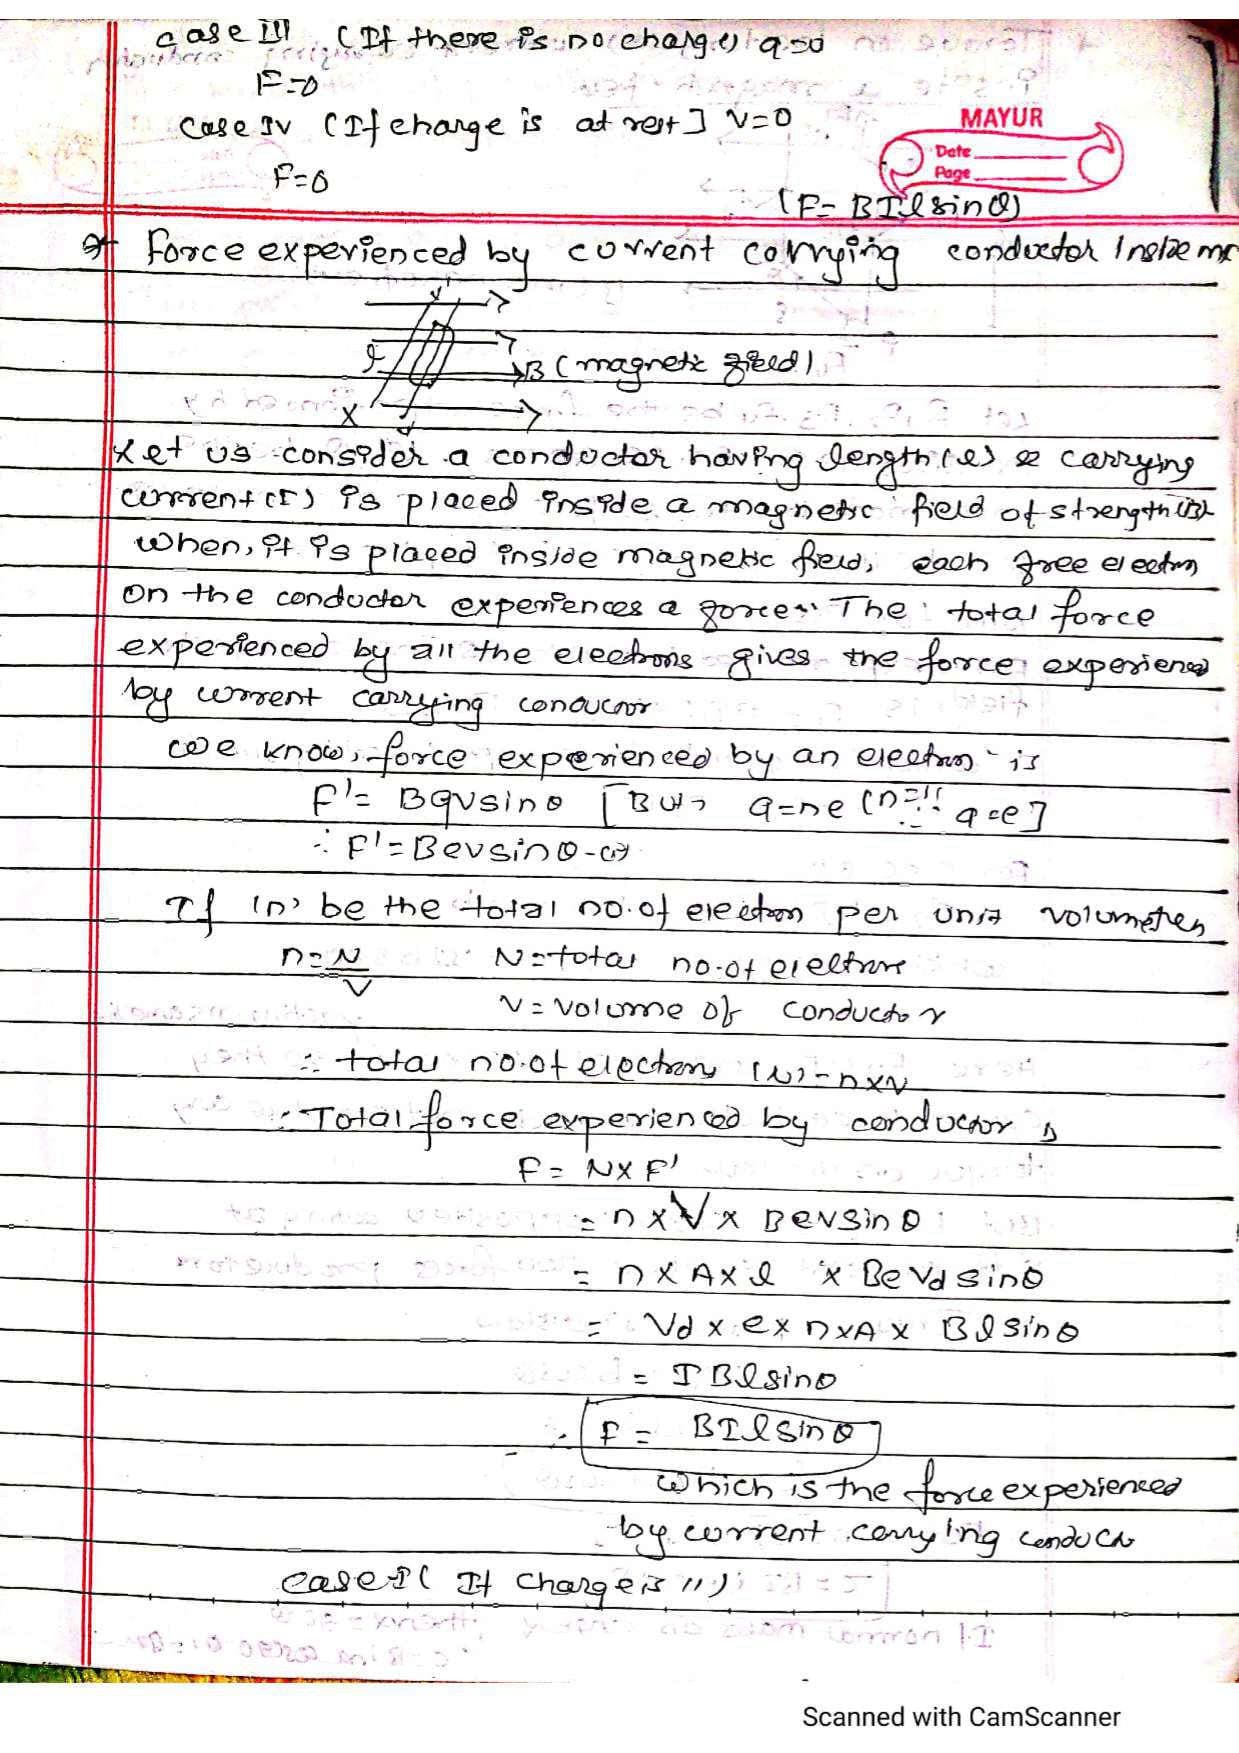 case III (If there is no charge) q=0
F=0
MAYUR
case IV (If charge is at rest] v=0
Date
Page
F=0
(F= BIlsinθ)
* Force experienced by current carrying conductor Inside
I
B (magnetic field)
X
Let us consider a conductor having length (l) & carrying
current (I) is placed inside a magnetic field of strength (B).
When, it is placed inside magnetic field, each free electron
on the conductor experiences a force. The total force
experienced by all the electrons gives the force experienced
by current carrying conductor
We know, force experienced by an electron is
F'= Bqvsinθ [But, q=ne (n=1) ∴ q=e]
∴ F'=Bevsinθ-(i)
If 'n' be the total no.of electron per unit volume then
n=N/V N=total no.of electrons
V= volume of conductor
∴ total no.of electrons (N)=n×V
∴ Total force experienced by conductor is
F= N×F'
= n×V× Bevsinθ
= n×A×l × BeVdsinθ
= Vd×e×n×A× Blsinθ
= IBlsinθ
∴ F = BIlsinθ
which is the force experienced
by current carrying conductor
case I ( If charge is 11)
Scanned with CamScanner